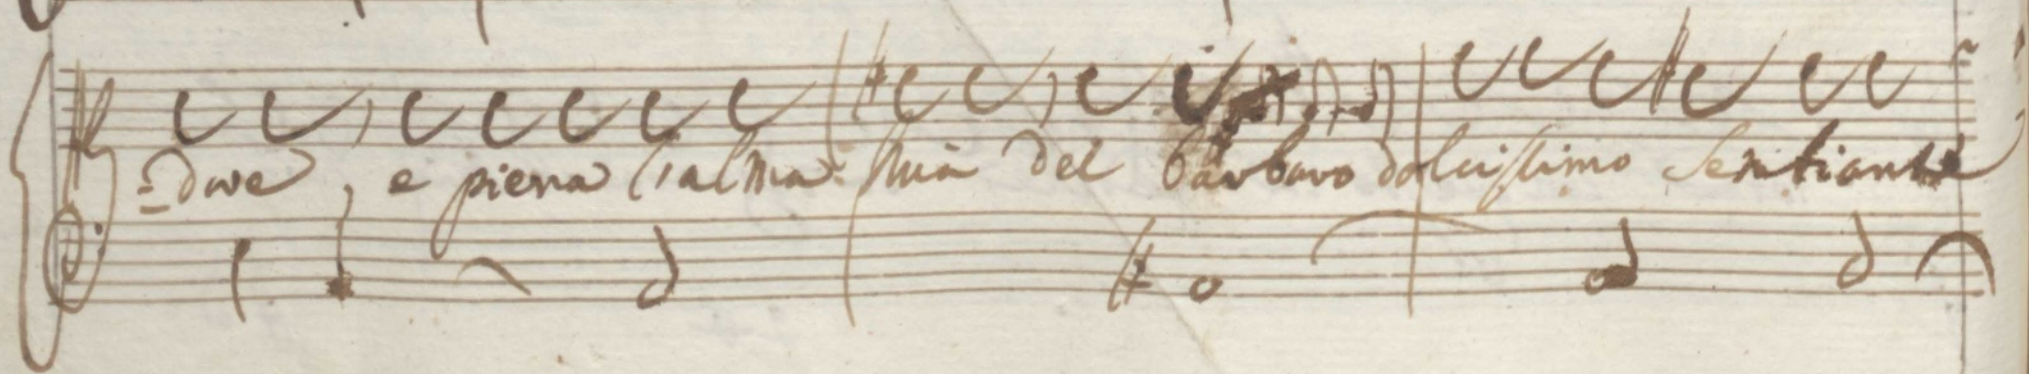 =dove, e piena l'alma mia del barbaro dolcissimo sembiante